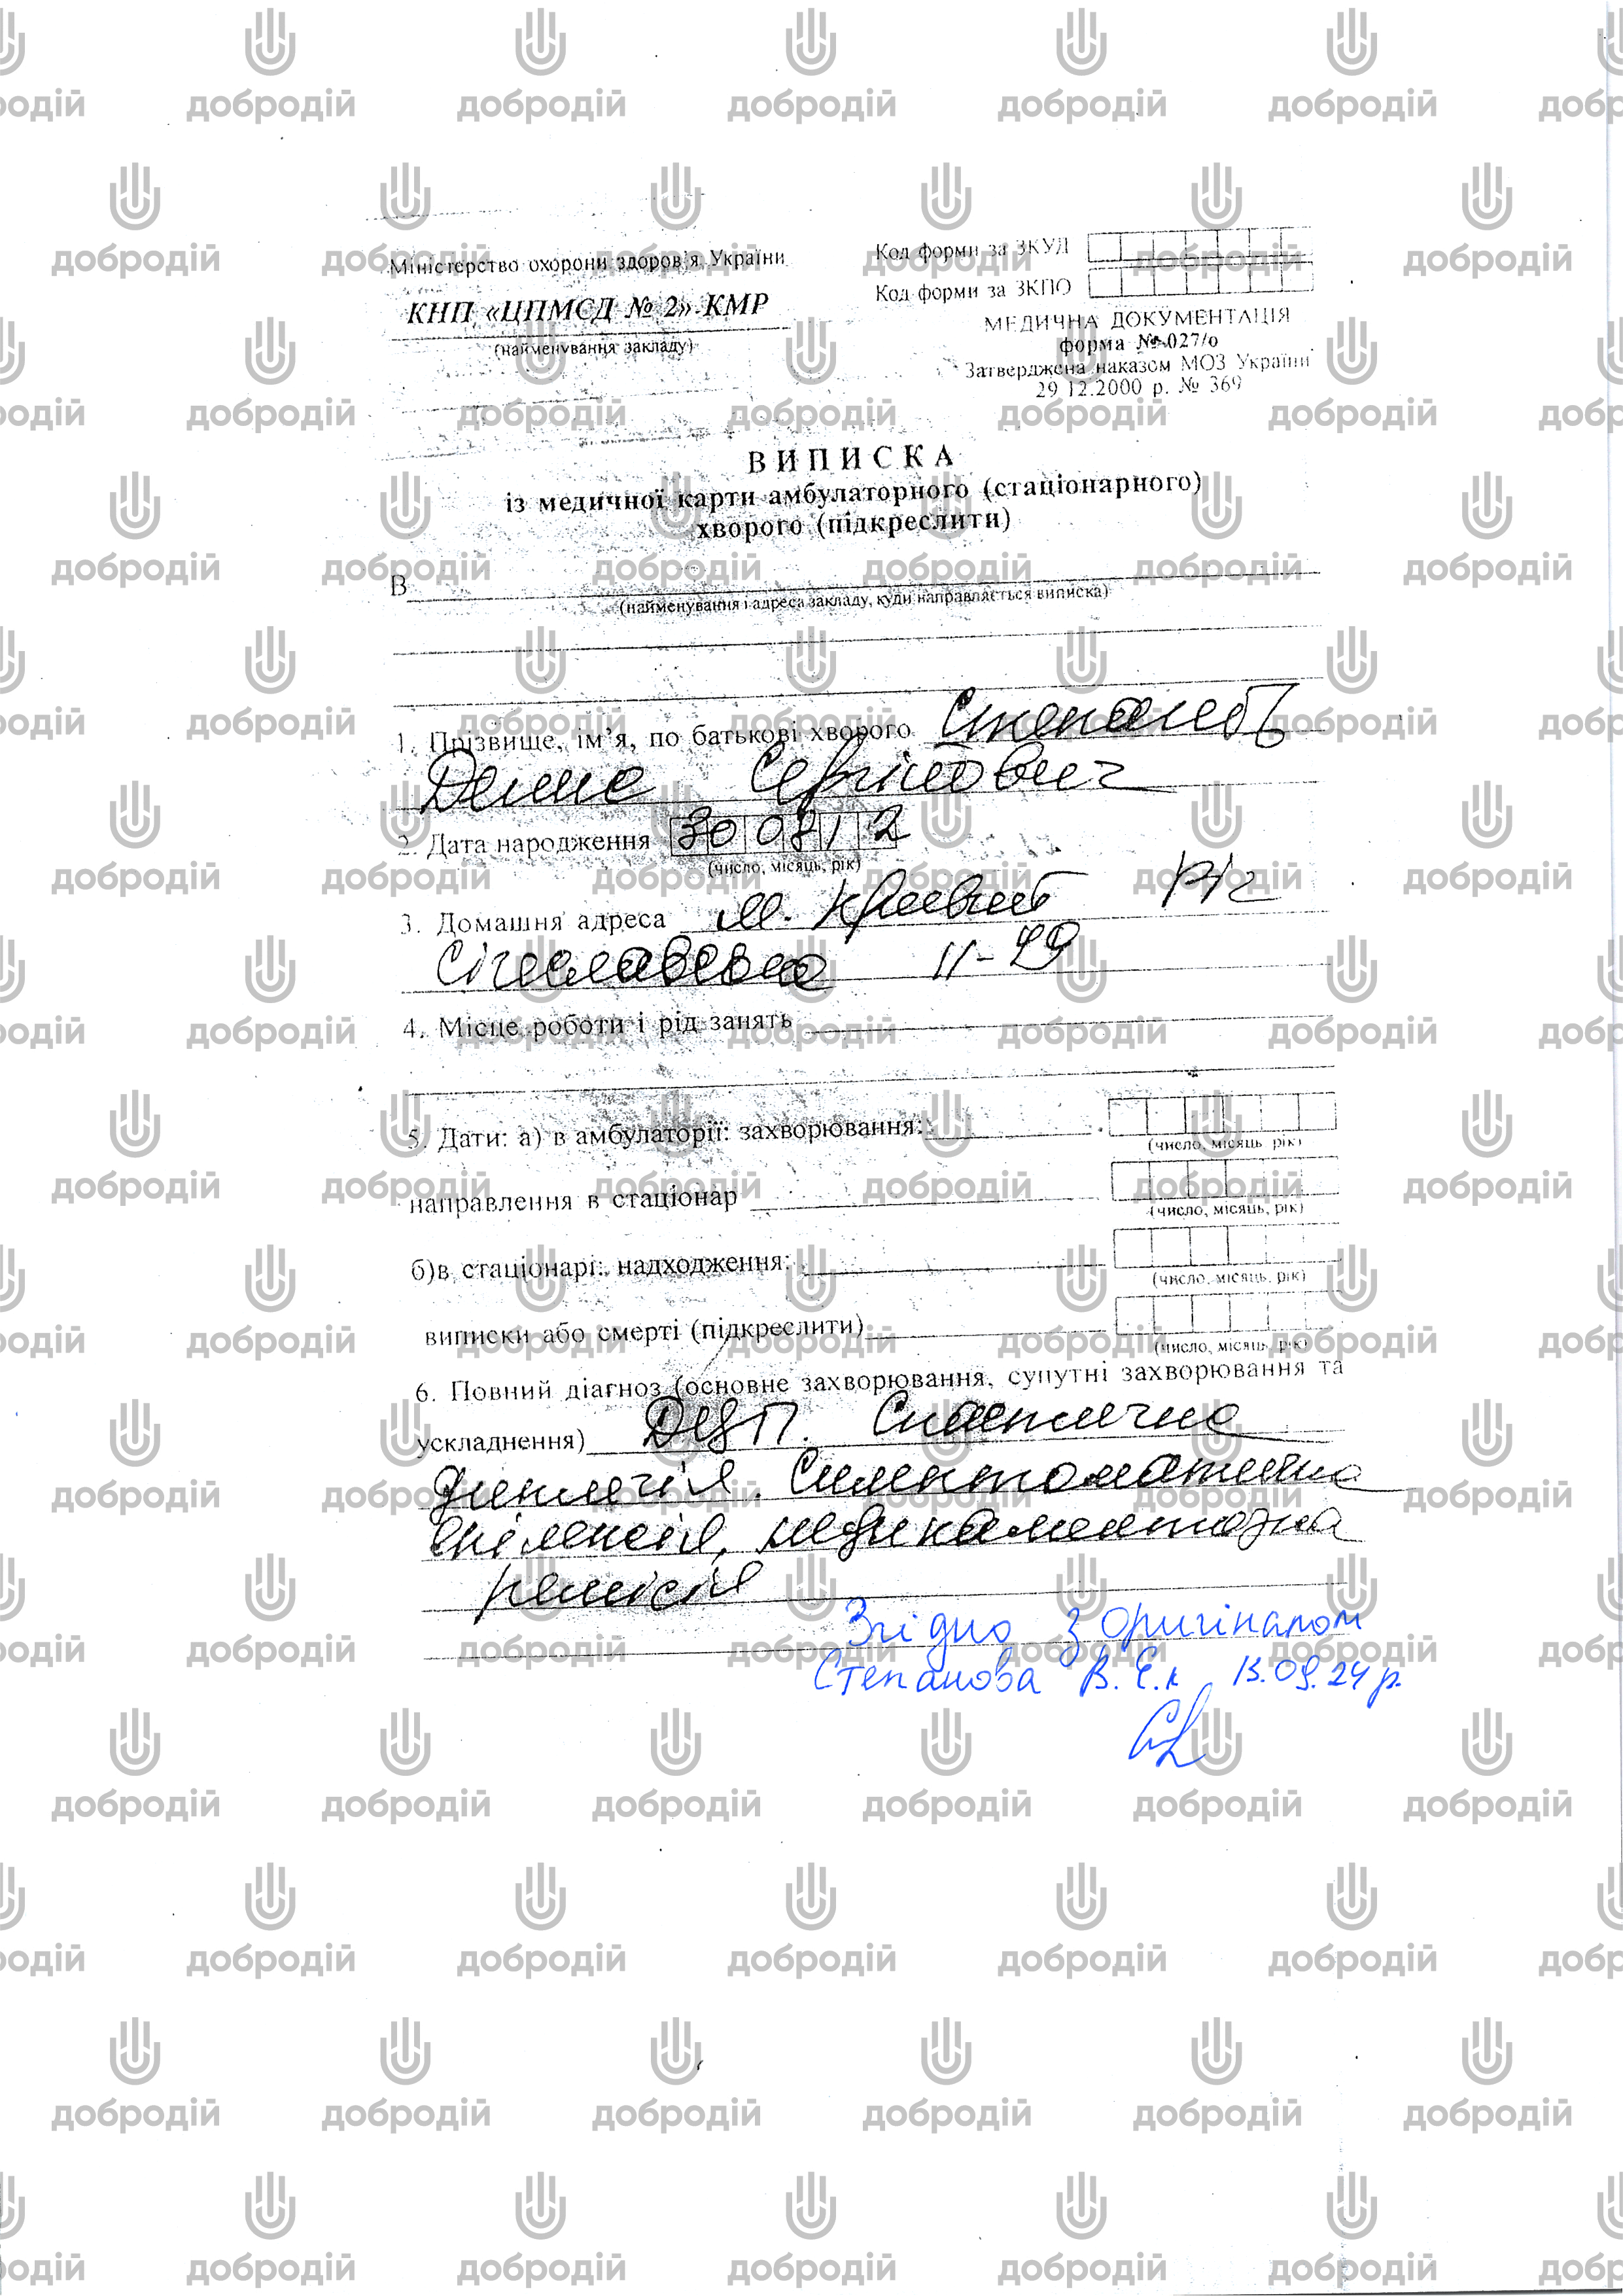 Міністерство охорони здоров'я України
КНП «ЦПМСД № 2» КМР
(найменування закладу)
Код форми за ЗКУД
Код форми за ЗКПО
МЕДИЧНА ДОКУМЕНТАЦІЯ
форма № 027/о
Затверджена наказом МОЗ України
29.12.2000 р. № 369
ВИПИСКА
із медичної карти амбулаторного (стаціонарного)
хворого (підкреслити)
В
(найменування і адреса закладу, куди направляється виписка)
1. Прізвище, ім'я, по батькові хворого Степанов
Денис Сергійович
2. Дата народження 30 08 12
(число, місяць, рік)
3. Домашня адреса м. Кривий Ріг
11-
4. Місце роботи і рід занять
5. Дати: а) в амбулаторії: захворювання:
(число, місяць, рік)
направлення в стаціонар
(число, місяць, рік)
б)в стаціонарі: надходження:
(число, місяць, рік)
виписки або смерті (підкреслити)
(число, місяць, рік)
6. Повний діагноз (основне захворювання, супутні захворювання та
ускладнення) ДЦП. Спастична
диплегія. Симптоматична
епілепсія, медикаментозна
ремісія
Згідно з оригіналом
Степанова В.Є. 13.09.24 р.
добродій